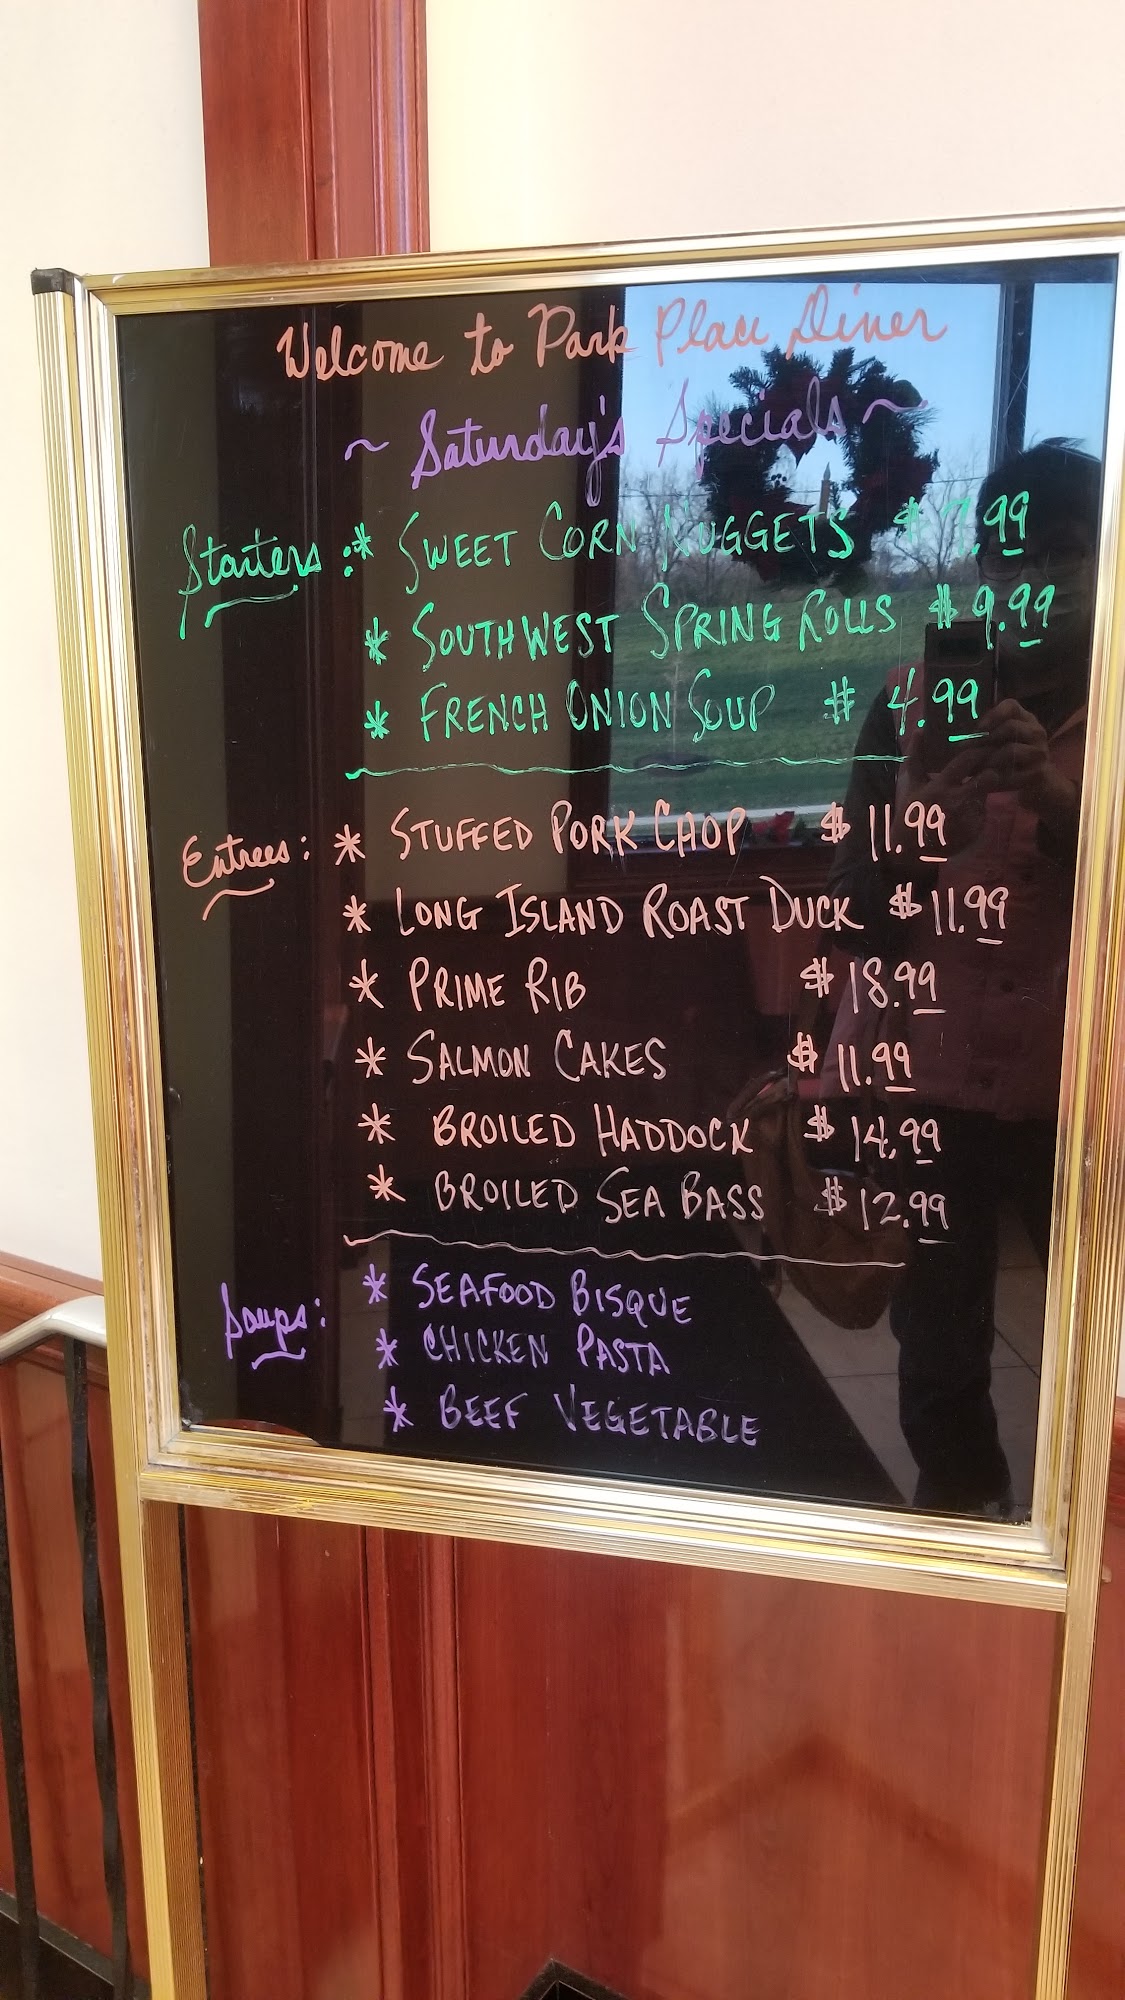 Welcome to Park Place Diner
~ Saturday's Specials ~
Starters: * SWEET CORN NUGGETS $ 7.99
* SOUTHWEST SPRING ROLLS $ 9.99
* FRENCH ONION SOUP $ 4.99
Entrees: * STUFFED PORK CHOP $ 11.99
* LONG ISLAND ROAST DUCK $ 11.99
* PRIME RIB $ 18.99
* SALMON CAKES $ 11.99
* BROILED HADDOCK $ 14.99
* BROILED SEA BASS $ 12.99
Soups: * SEAFOOD BISQUE
* CHICKEN PASTA
* BEEF VEGETABLE